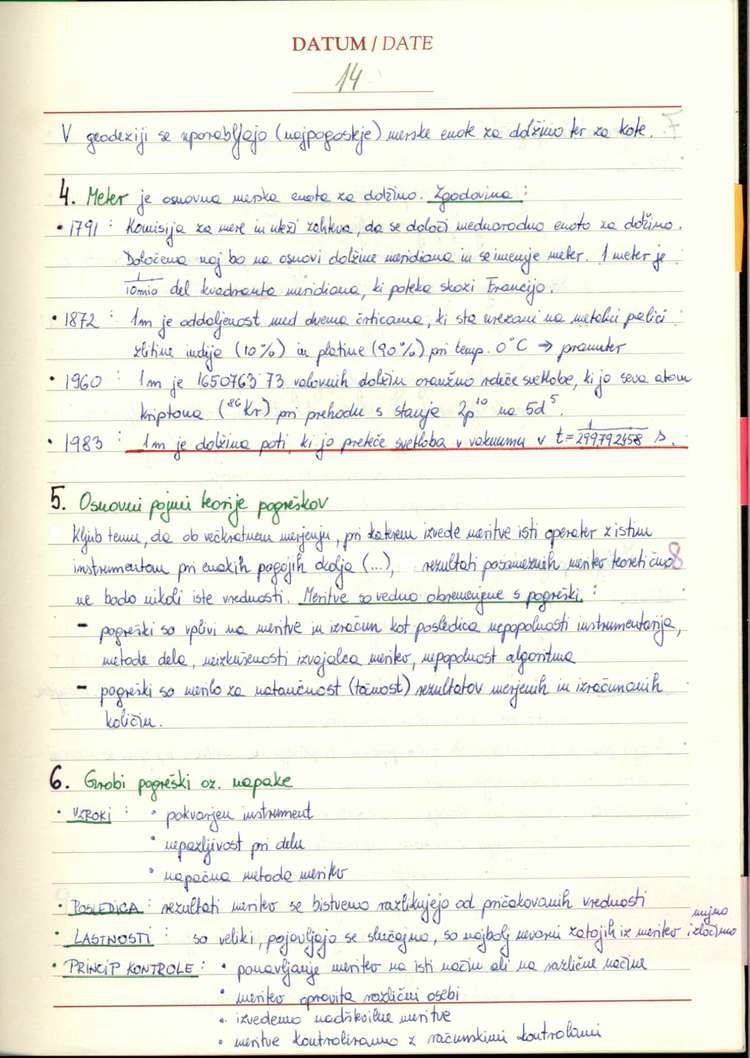 DATUM / DATE
14
V geodeziji se uporabljajo (najpogosteje) merske enote za dolžino ter za kote.
4. Meter je osnovna merska enota za dolžino. Zgodovina :
• 1791 : Komisija za mere in uteži zahteva, da se določi mednarodno enoto za dolžino.
Določena naj bo na osnovi dolžine meridiana in se imenuje meter. 1 meter je
1/10mio del kvadranta meridiana, ki poteka skozi Francijo.
• 1872 : 1m je oddaljenost med dvema črticama, ki sta vrezani na metalni palici
zlitine indija (10%) in platine (90%) pri temp. 0°C → prameter
• 1960 : 1m je 1650763 73 valovnih dolžin oranžno rdeče svetlobe, ki jo seva atom
kriptona (⁸⁶Kr) pri prehodu s stanja 2p¹⁰ na 5d⁵.
• 1983 : 1m je dolžina poti, ki jo preteče svetloba v vakuumu v t = 1/299.792458 s.
5. Osnovni pojmi teorije pogreškov
Kljub temu, da ob večkratnem merjenju, pri katerem izvede meritve isti operater z istim
instrumentom pri enakih pogojih okolja (...), rezultati posameznih meritev teoretično 8
ne bodo nikoli iste vrednosti. Meritve so vedno obremenjene s pogreški. :
- pogreški so vplivi na meritve in izračun kot posledica nepopolnosti instrumentarija,
metode dela, neizkušenosti izvajalca meritev, nepopolnost algoritma
- pogreški so merilo za natančnost (točnost) rezultatov merjenih in izračunanih
količin.
6. Grobi pogreški oz. napake
• VZROKI : • pokvarjen instrument
• nepazljivost pri delu
• napačna metoda meritev
• POSLEDICA : rezultati meritev se bistveno razlikujejo od pričakovanih vrednosti
• LASTNOSTI : so veliki, pojavljajo se slučajno, so najbolj nevarni zato jih iz meritev nujno izločimo
• PRINCIP KONTROLE : • ponavljanje meritev na isti način ali na različne načine
• meritev opravita različni osebi
• izvedemo nadštevilne meritve
• meritve kontroliramo z računskimi kontrolami